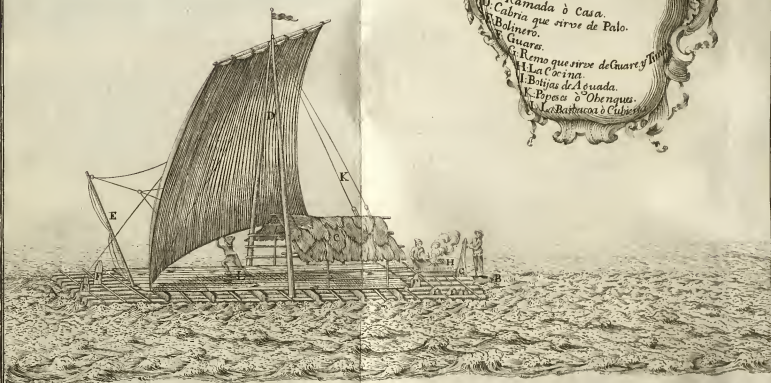 Ramada ò Casa.
D. Cabria que sirve de Palo.
E. Bolinero.
F. Guares.
G. Remo que sirve de Guare, y
H. La Cocina.
I. Botijas de Aguada.
K. Popeses ò Obenques.
L. La Barbacoa ò Cubierta
D
K
E
C
H
B